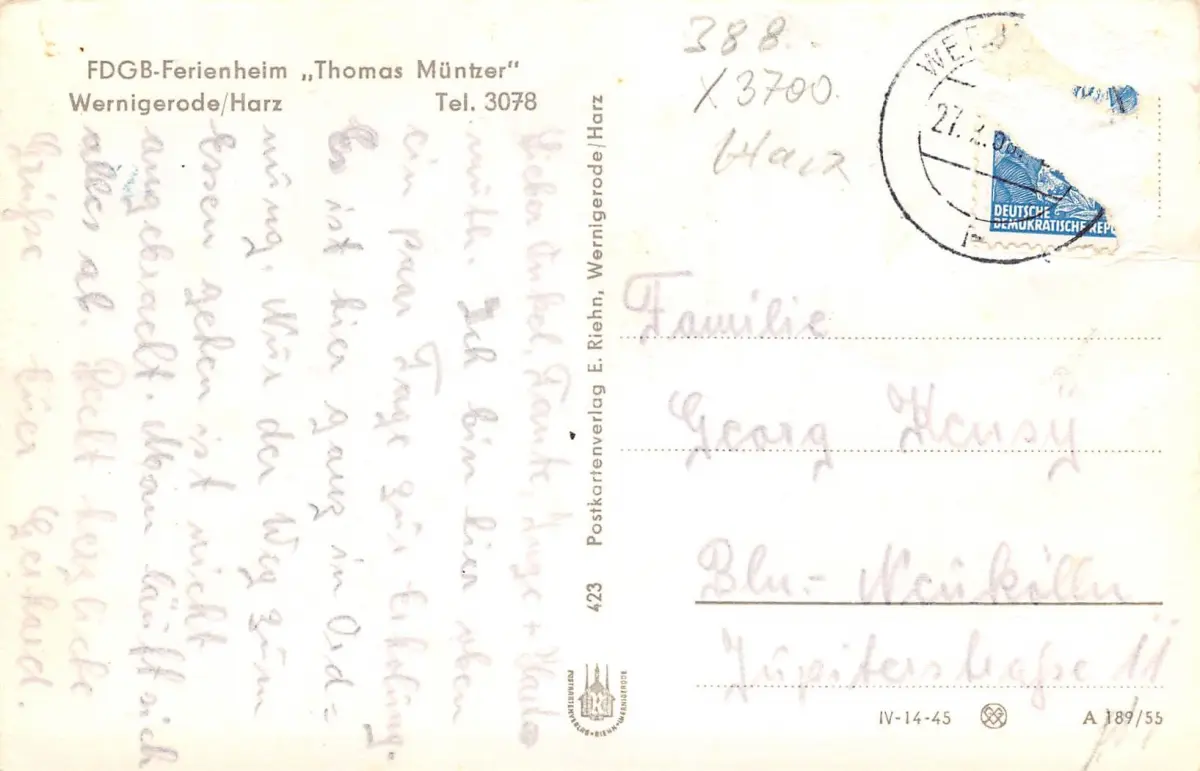 FDGB-Ferienheim „Thomas Müntzer"
Wernigerode/Harz Tel. 3078
Lieber Onkel, Tante, Inge +
Ich bin hier oben
ein paar Tage zur Erholung.
Es ist hier ganz in Ord-
nung. Nur der Weg zum
Essen gehen ist nicht
angebracht. Man läuft sich
alles ab. Recht herzliche
Grüße Euer Gerhard
423 Postkartenverlag E. Riehn, Wernigerode/Harz
POSTKARTENVERLAG • RIEHN • WERNIGERODE
388.
X3700.
Harz
27.2.
DEUTSCHE
DEMOKRATISCHE REPU
Familie
Georg
Bln.- Neukölln
Jupiterstraße 11
IV-14-45 A 189/55